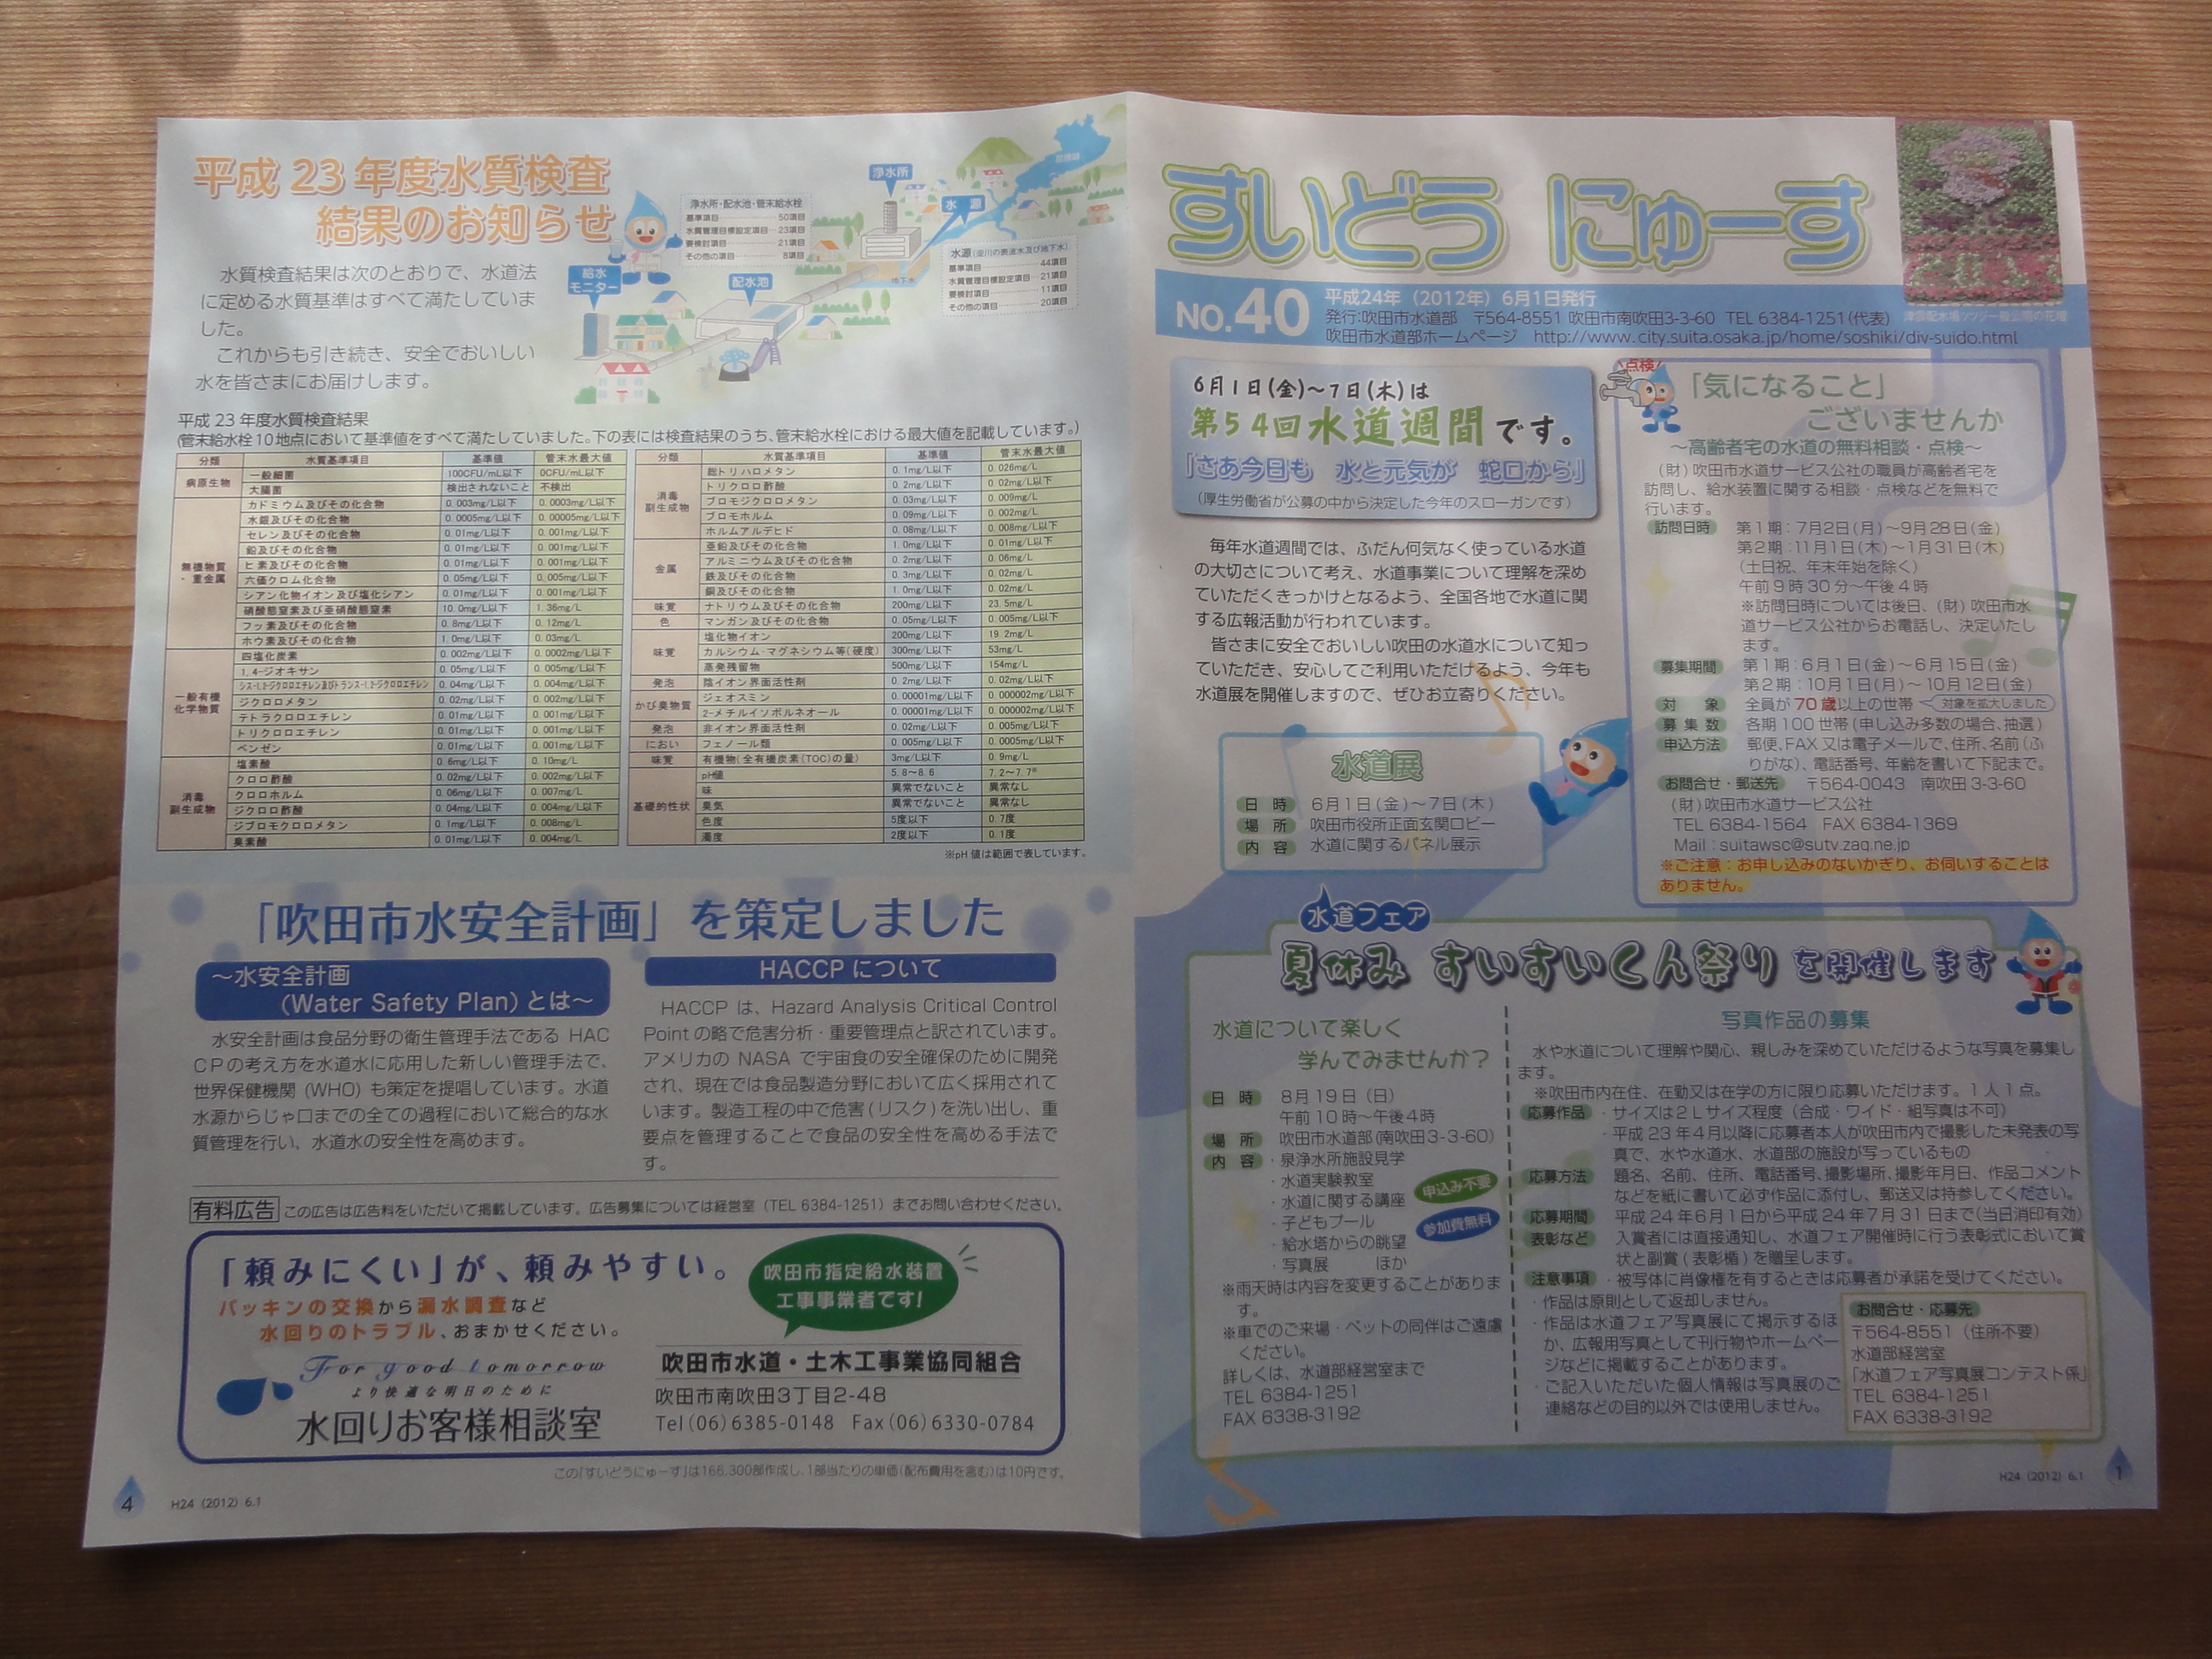 平成 23 年度水質検査
結果のお知らせ
水質検査結果は次のとおりで、水道法
に定める水質基準はすべて満たしていま
した。
これからも引き続き、安全でおいしい
水を皆さまにお届けします。
浄水所・配水池・管末給水栓
基準項目 50項目
水質管理目標設定項目 23項目
要検討項目 21項目
その他の項目 8項目
浄水所
水 源
水源(淀川の表流水及び地下水)
基準項目 44項目
水質管理目標設定項目 21項目
要検討項目 11項目
その他の項目 20項目
地下水
給水
モニター
配水池
平成 23 年度水質検査結果
(管末給水栓 10 地点において基準値をすべて満たしていました。下の表には検査結果のうち、管末給水栓における最大値を記載しています。)
分類 水質基準項目 基準値 管末水最大値
病原生物
一般細菌 100CFU/mL以下 0CFU/mL以下
大腸菌 検出されないこと 不検出
無機物質
・重金属
カドミウム及びその化合物 0.003mg/L以下 0.0003mg/L以下
水銀及びその化合物 0.0005mg/L以下 0.00005mg/L以下
セレン及びその化合物 0.01mg/L以下 0.001mg/L以下
鉛及びその化合物 0.01mg/L以下 0.001mg/L以下
ヒ素及びその化合物 0.01mg/L以下 0.001mg/L以下
六価クロム化合物 0.05mg/L以下 0.005mg/L以下
シアン化物イオン及び塩化シアン 0.01mg/L以下 0.001mg/L以下
硝酸態窒素及び亜硝酸態窒素 10.0mg/L以下 1.36mg/L
フッ素及びその化合物 0.8mg/L以下 0.12mg/L
ホウ素及びその化合物 1.0mg/L以下 0.03mg/L
一般有機
化学物質
四塩化炭素 0.002mg/L以下 0.0002mg/L以下
1,4-ジオキサン 0.05mg/L以下 0.005mg/L以下
シス-1,2-ジクロロエチレン及びトランス-1,2-ジクロロエチレン 0.04mg/L以下 0.004mg/L以下
ジクロロメタン 0.02mg/L以下 0.002mg/L以下
テトラクロロエチレン 0.01mg/L以下 0.001mg/L以下
トリクロロエチレン 0.01mg/L以下 0.001mg/L以下
ベンゼン 0.01mg/L以下 0.001mg/L以下
消毒
副生成物
塩素酸 0.6mg/L以下 0.10mg/L
クロロ酢酸 0.02mg/L以下 0.002mg/L以下
クロロホルム 0.06mg/L以下 0.007mg/L
ジクロロ酢酸 0.04mg/L以下 0.004mg/L以下
ジブロモクロロメタン 0.1mg/L以下 0.008mg/L
臭素酸 0.01mg/L以下 0.004mg/L
分類 水質基準項目 基準値 管末水最大値
消毒
副生成物
総トリハロメタン 0.1mg/L以下 0.026mg/L
トリクロロ酢酸 0.2mg/L以下 0.02mg/L以下
ブロモジクロロメタン 0.03mg/L以下 0.009mg/L
ブロモホルム 0.09mg/L以下 0.002mg/L
ホルムアルデヒド 0.08mg/L以下 0.008mg/L以下
金属
亜鉛及びその化合物 1.0mg/L以下 0.01mg/L以下
アルミニウム及びその化合物 0.2mg/L以下 0.06mg/L
鉄及びその化合物 0.3mg/L以下 0.02mg/L
銅及びその化合物 1.0mg/L以下 0.02mg/L
味覚 ナトリウム及びその化合物 200mg/L以下 23.5mg/L
色 マンガン及びその化合物 0.05mg/L以下 0.005mg/L以下
味覚
塩化物イオン 200mg/L以下 19.2mg/L
カルシウム・マグネシウム等(硬度) 300mg/L以下 53mg/L
蒸発残留物 500mg/L以下 154mg/L
発泡 陰イオン界面活性剤 0.2mg/L以下 0.02mg/L以下
かび臭物質
ジェオスミン 0.00001mg/L以下 0.000002mg/L以下
2-メチルイソボルネオール 0.00001mg/L以下 0.000002mg/L以下
発泡 非イオン界面活性剤 0.02mg/L以下 0.005mg/L以下
におい フェノール類 0.005mg/L以下 0.0005mg/L以下
味覚 有機物(全有機炭素(TOC)の量) 3mg/L以下 0.9mg/L
基礎的性状
pH値 5.8〜8.6 7.2〜7.7※
味 異常でないこと 異常なし
臭気 異常でないこと 異常なし
色度 5度以下 0.7度
濁度 2度以下 0.1度
※pH 値は範囲で表しています。
「吹田市水安全計画」を策定しました
〜水安全計画
(Water Safety Plan) とは〜
水安全計画は食品分野の衛生管理手法である HAC
CPの考え方を水道水に応用した新しい管理手法で、
世界保健機関 (WHO) も策定を提唱しています。水道
水源からじゃ口までの全ての過程において総合的な水
質管理を行い、水道水の安全性を高めます。
HACCP について
HACCP は、Hazard Analysis Critical Control
Point の略で危害分析・重要管理点と訳されています。
アメリカの NASA で宇宙食の安全確保のために開発
され、現在では食品製造分野において広く採用されて
います。製造工程の中で危害(リスク)を洗い出し、重
要点を管理することで食品の安全性を高める手法で
す。
有料広告 この広告は広告料をいただいて掲載しています。広告募集については経営室 (TEL 6384-1251) までお問い合わせください。
「頼みにくい」が、頼みやすい。
パッキンの交換から漏水調査など
水回りのトラブル、おまかせください。
For good tomorrow
より快適な明日のために
水回りお客様相談室
吹田市指定給水装置
工事事業者です!
吹田市水道・土木工事業協同組合
吹田市南吹田3丁目2-48
Tel(06)6385-0148 Fax(06)6330-0784
この「すいどうにゅーす」は166,300部作成し、1部当たりの単価(配布費用を含む)は10円です。
4 H24 (2012) 6.1
すいどう にゅーす
NO.40
平成24年 (2012年) 6月1日発行
発行:吹田市水道部 〒564-8551 吹田市南吹田3-3-60 TEL 6384-1251(代表)
吹田市水道部ホームページ http://www.city.suita.osaka.jp/home/soshiki/div-suido.html
6月1日(金)〜7日(木)は
第54回水道週間です。
「さあ今日も 水と元気が 蛇口から」
(厚生労働省が公募の中から決定した今年のスローガンです)
毎年水道週間では、ふだん何気なく使っている水道
の大切さについて考え、水道事業について理解を深め
ていただくきっかけとなるよう、全国各地で水道に関
する広報活動が行われています。
皆さまに安全でおいしい吹田の水道水について知っ
ていただき、安心してご利用いただけるよう、今年も
水道展を開催しますので、ぜひお立寄りください。
水道展
日 時 6月1日(金)〜7日(木)
場 所 吹田市役所正面玄関ロビー
内 容 水道に関するパネル展示
点検
「気になること」
ございませんか
〜高齢者宅の水道の無料相談・点検〜
(財)吹田市水道サービス公社の職員が高齢者宅を
訪問し、給水装置に関する相談・点検などを無料で
行います。
訪問日時 第1期:7月2日(月)〜9月28日(金)
第2期:11月1日(木)〜1月31日(木)
(土日祝、年末年始を除く)
午前9時30分〜午後4時
※訪問日時については後日、(財)吹田市水
道サービス公社からお電話し、決定いたし
ます。
募集期間 第1期:6月1日(金)〜6月15日(金)
第2期:10月1日(月)〜10月12日(金)
対 象 全員が70歳以上の世帯 対象を拡大しました
募集数 各期100世帯(申し込み多数の場合、抽選)
申込方法 郵便、FAX又は電子メールで、住所、名前(ふ
りがな)、電話番号、年齢を書いて下記まで。
お問合せ・郵送先 〒564-0043 南吹田3-3-60
(財)吹田市水道サービス公社
TEL 6384-1564 FAX 6384-1369
Mail:suitawsc@sutv.zaq.ne.jp
※ご注意:お申し込みのないかぎり、お伺いすることは
ありません。
水道フェア
夏休み すいすいくん祭り を開催します
水道について楽しく
学んでみませんか?
日 時 8月19日(日)
午前10時〜午後4時
場 所 吹田市水道部(南吹田3-3-60)
内 容 ・泉浄水所施設見学
・水道実験教室
・水道に関する講座
・子どもプール
・給水塔からの眺望
・写真展 ほか
申込み不要
参加費無料
※雨天時は内容を変更することがありま
す。
※車でのご来場・ペットの同伴はご遠慮
ください。
詳しくは、水道部経営室まで
TEL 6384-1251
FAX 6338-3192
写真作品の募集
水や水道について理解や関心、親しみを深めていただけるような写真を募集し
ます。
※吹田市内在住、在勤又は在学の方に限り応募いただけます。1人1点。
応募作品 ・サイズは2Lサイズ程度(合成・ワイド・組写真は不可)
・平成23年4月以降に応募者本人が吹田市内で撮影した未発表の写
真で、水や水道水、水道部の施設が写っているもの
応募方法 題名、名前、住所、電話番号、撮影場所、撮影年月日、作品コメント
などを紙に書いて必ず作品に添付し、郵送又は持参してください。
応募期間 平成24年6月1日から平成24年7月31日まで(当日消印有効)
表彰など 入賞者には直接通知し、水道フェア開催時に行う表彰式において賞
状と副賞(表彰楯)を贈呈します。
注意事項 ・被写体に肖像権を有するときは応募者が承諾を受けてください。
・作品は原則として返却しません。
・作品は水道フェア写真展にて掲示するほ
か、広報用写真として刊行物やホームペー
ジなどに掲載することがあります。
・ご記入いただいた個人情報は写真展のご
連絡などの目的以外では使用しません。
お問合せ・応募先
〒564-8551(住所不要)
水道部経営室
「水道フェア写真展コンテスト係」
TEL 6384-1251
FAX 6338-3192
H24 (2012) 6.1 1